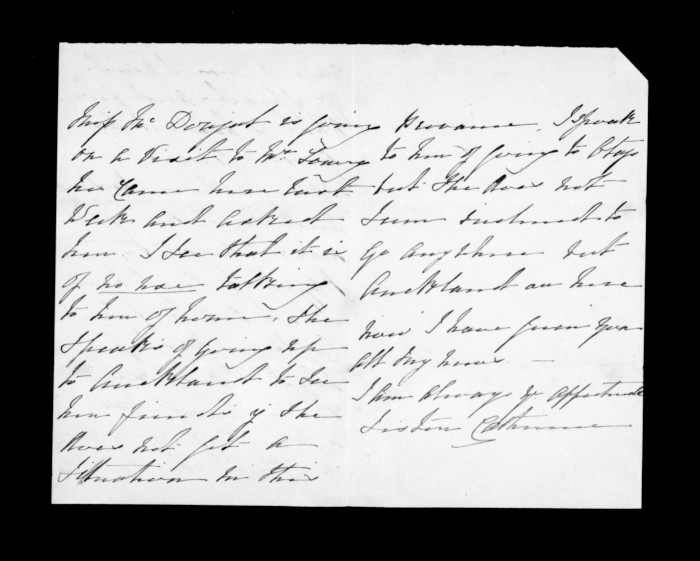 Miss McDougal is going
on a visit to Mr Lowry
he came here last
Week and asked
her. I see that it is
of no use talking
to her of home, she
speaks of going up
to Auckland to see
her friends if she
does not get a
situation in this
Province, I spoke
to her of going to Otago
but she does not
seem inclined to
go anywhere but
Auckland or here
now I have given you
all my news —
I am always yr affectionate
Sister Catherine